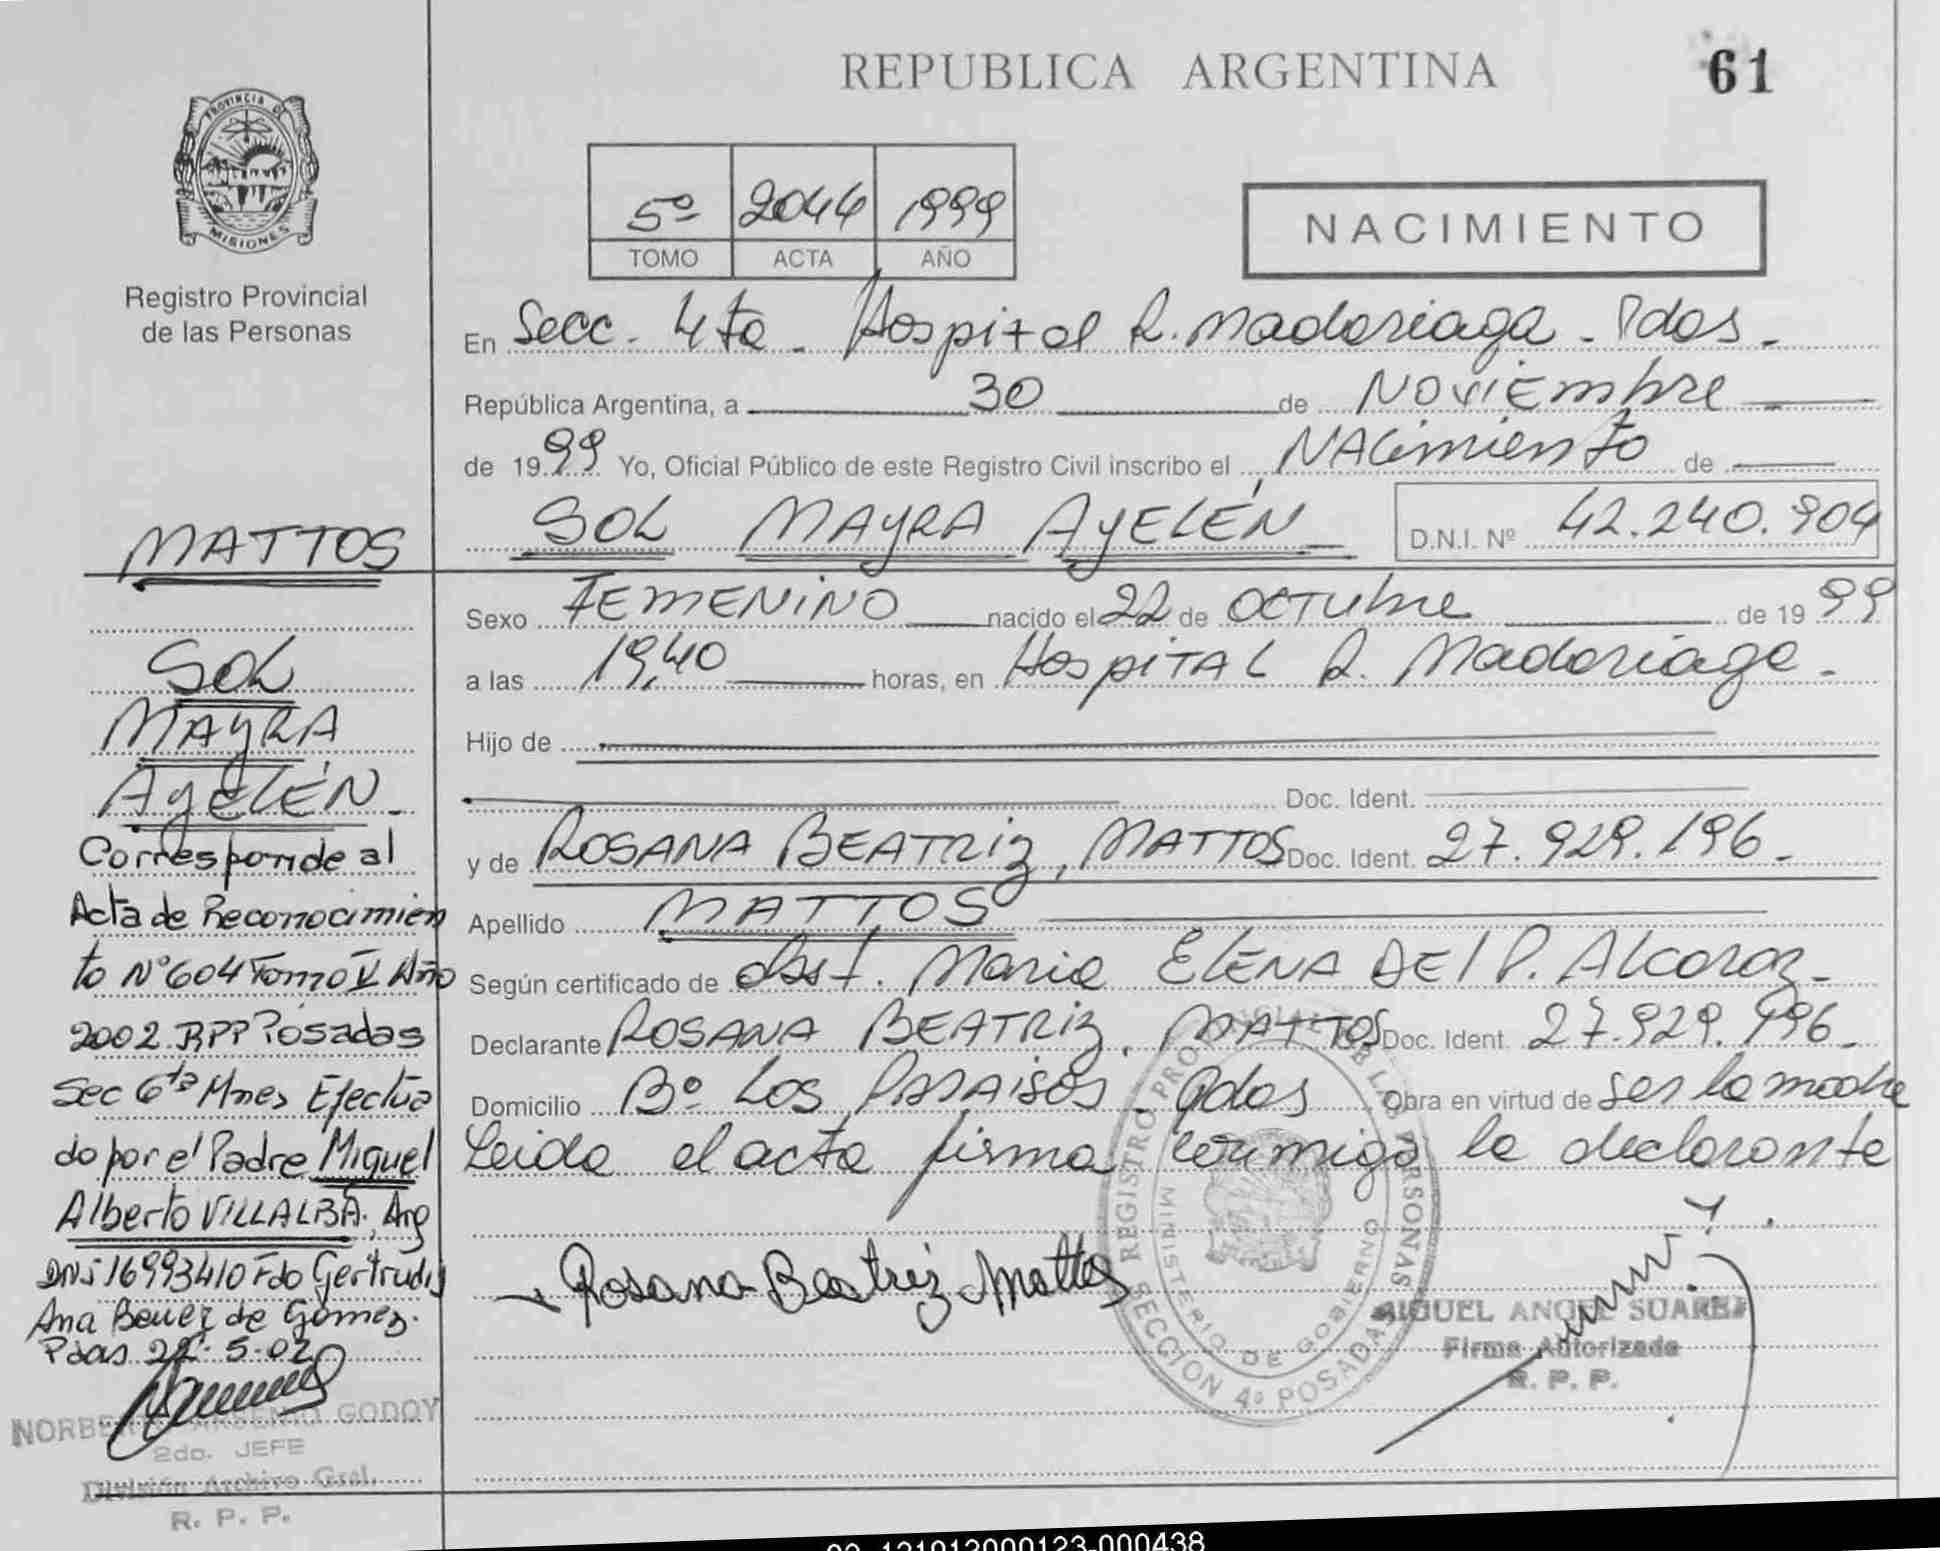 REPUBLICA ARGENTINA
61
PROVINCIA DE
MISIONES
Registro Provincial
de las Personas
5º 2044 1999
TOMO ACTA AÑO
NACIMIENTO
En Secc. 4ta. Hospital R. Madariaga. Pdas.
República Argentina, a 30 de NoviEmbre
de 1999 Yo, Oficial Público de este Registro Civil inscribo el NACimiento de
SOL MAYRA AYELÉN D.N.I. Nº 42.240.904
Sexo FEMENINO nacido el 22 de OCTubre de 1999
a las 19,40 horas, en HospITAL R. Madariaga.
Hijo de
Doc. Ident.
y de ROSANA BEATRIZ, MATTOS Doc. Ident. 27.929.196.
Apellido MATTOS
Según certificado de obst. Maria ELENA DEl P. Alcaraz.
Declarante ROSANA BEATRIZ, MATTOS Doc. Ident. 27.929.196.
Domicilio Bº Los PARAISOS. Pdas Obra en virtud de ser la madre
Leida el acta firma conmigo la declarante
Rosana Beatriz Mattos
REGISTRO PROVINCIAL DE LAS PERSONAS
MINISTERIO DE GOBIERNO
SECCION 4ª POSADAS
MIGUEL ANGEL SUAREZ
Firma Autorizada
R. P. P.
MATTOS
SOL
MAYRA
AYELÉN
Corresponde al
Acta de Reconocimien
to Nº 604 Tomo V Año
2002 RPP Posadas
Sec 6ta Mnes Efectua
do por el Padre Miguel
Alberto VILLALBA. Arg
DNI 16993410 Fdo Gertrudis
Ana de Gomez.
Pdas 5-02
GODOY
2do. JEFE
División Archivo Gral.
R. P. P.